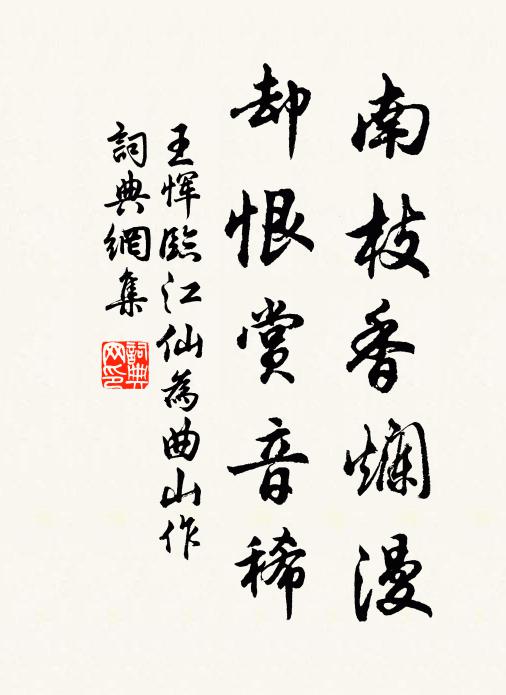 南枝香爛漫
却恨賞音稀
王惲臨江仙為曲山作
詞典網集
詞典
网印